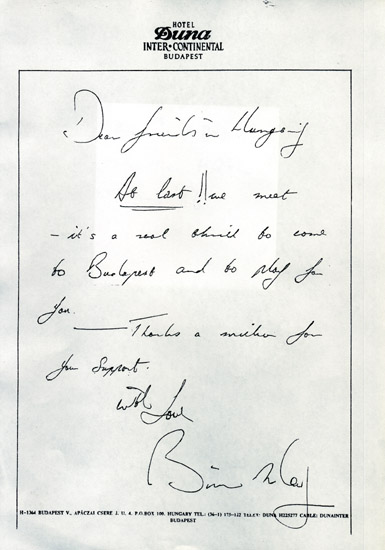 HOTEL
Duna
INTER·CONTINENTAL
BUDAPEST
Dear friends in Hungary
At last!! we meet
- it's a real thrill to come
to Budapest and to play for
you.
— Thanks a million for
your support.
with love
Brian May
H-1364 BUDAPEST V., APÁCZAI CSERE J. U. 4. P.O.BOX 100. HUNGARY TEL.: (36-1) 175-122 TELEX: DUNA H225277 CABLE: DUNAINTER
BUDAPEST